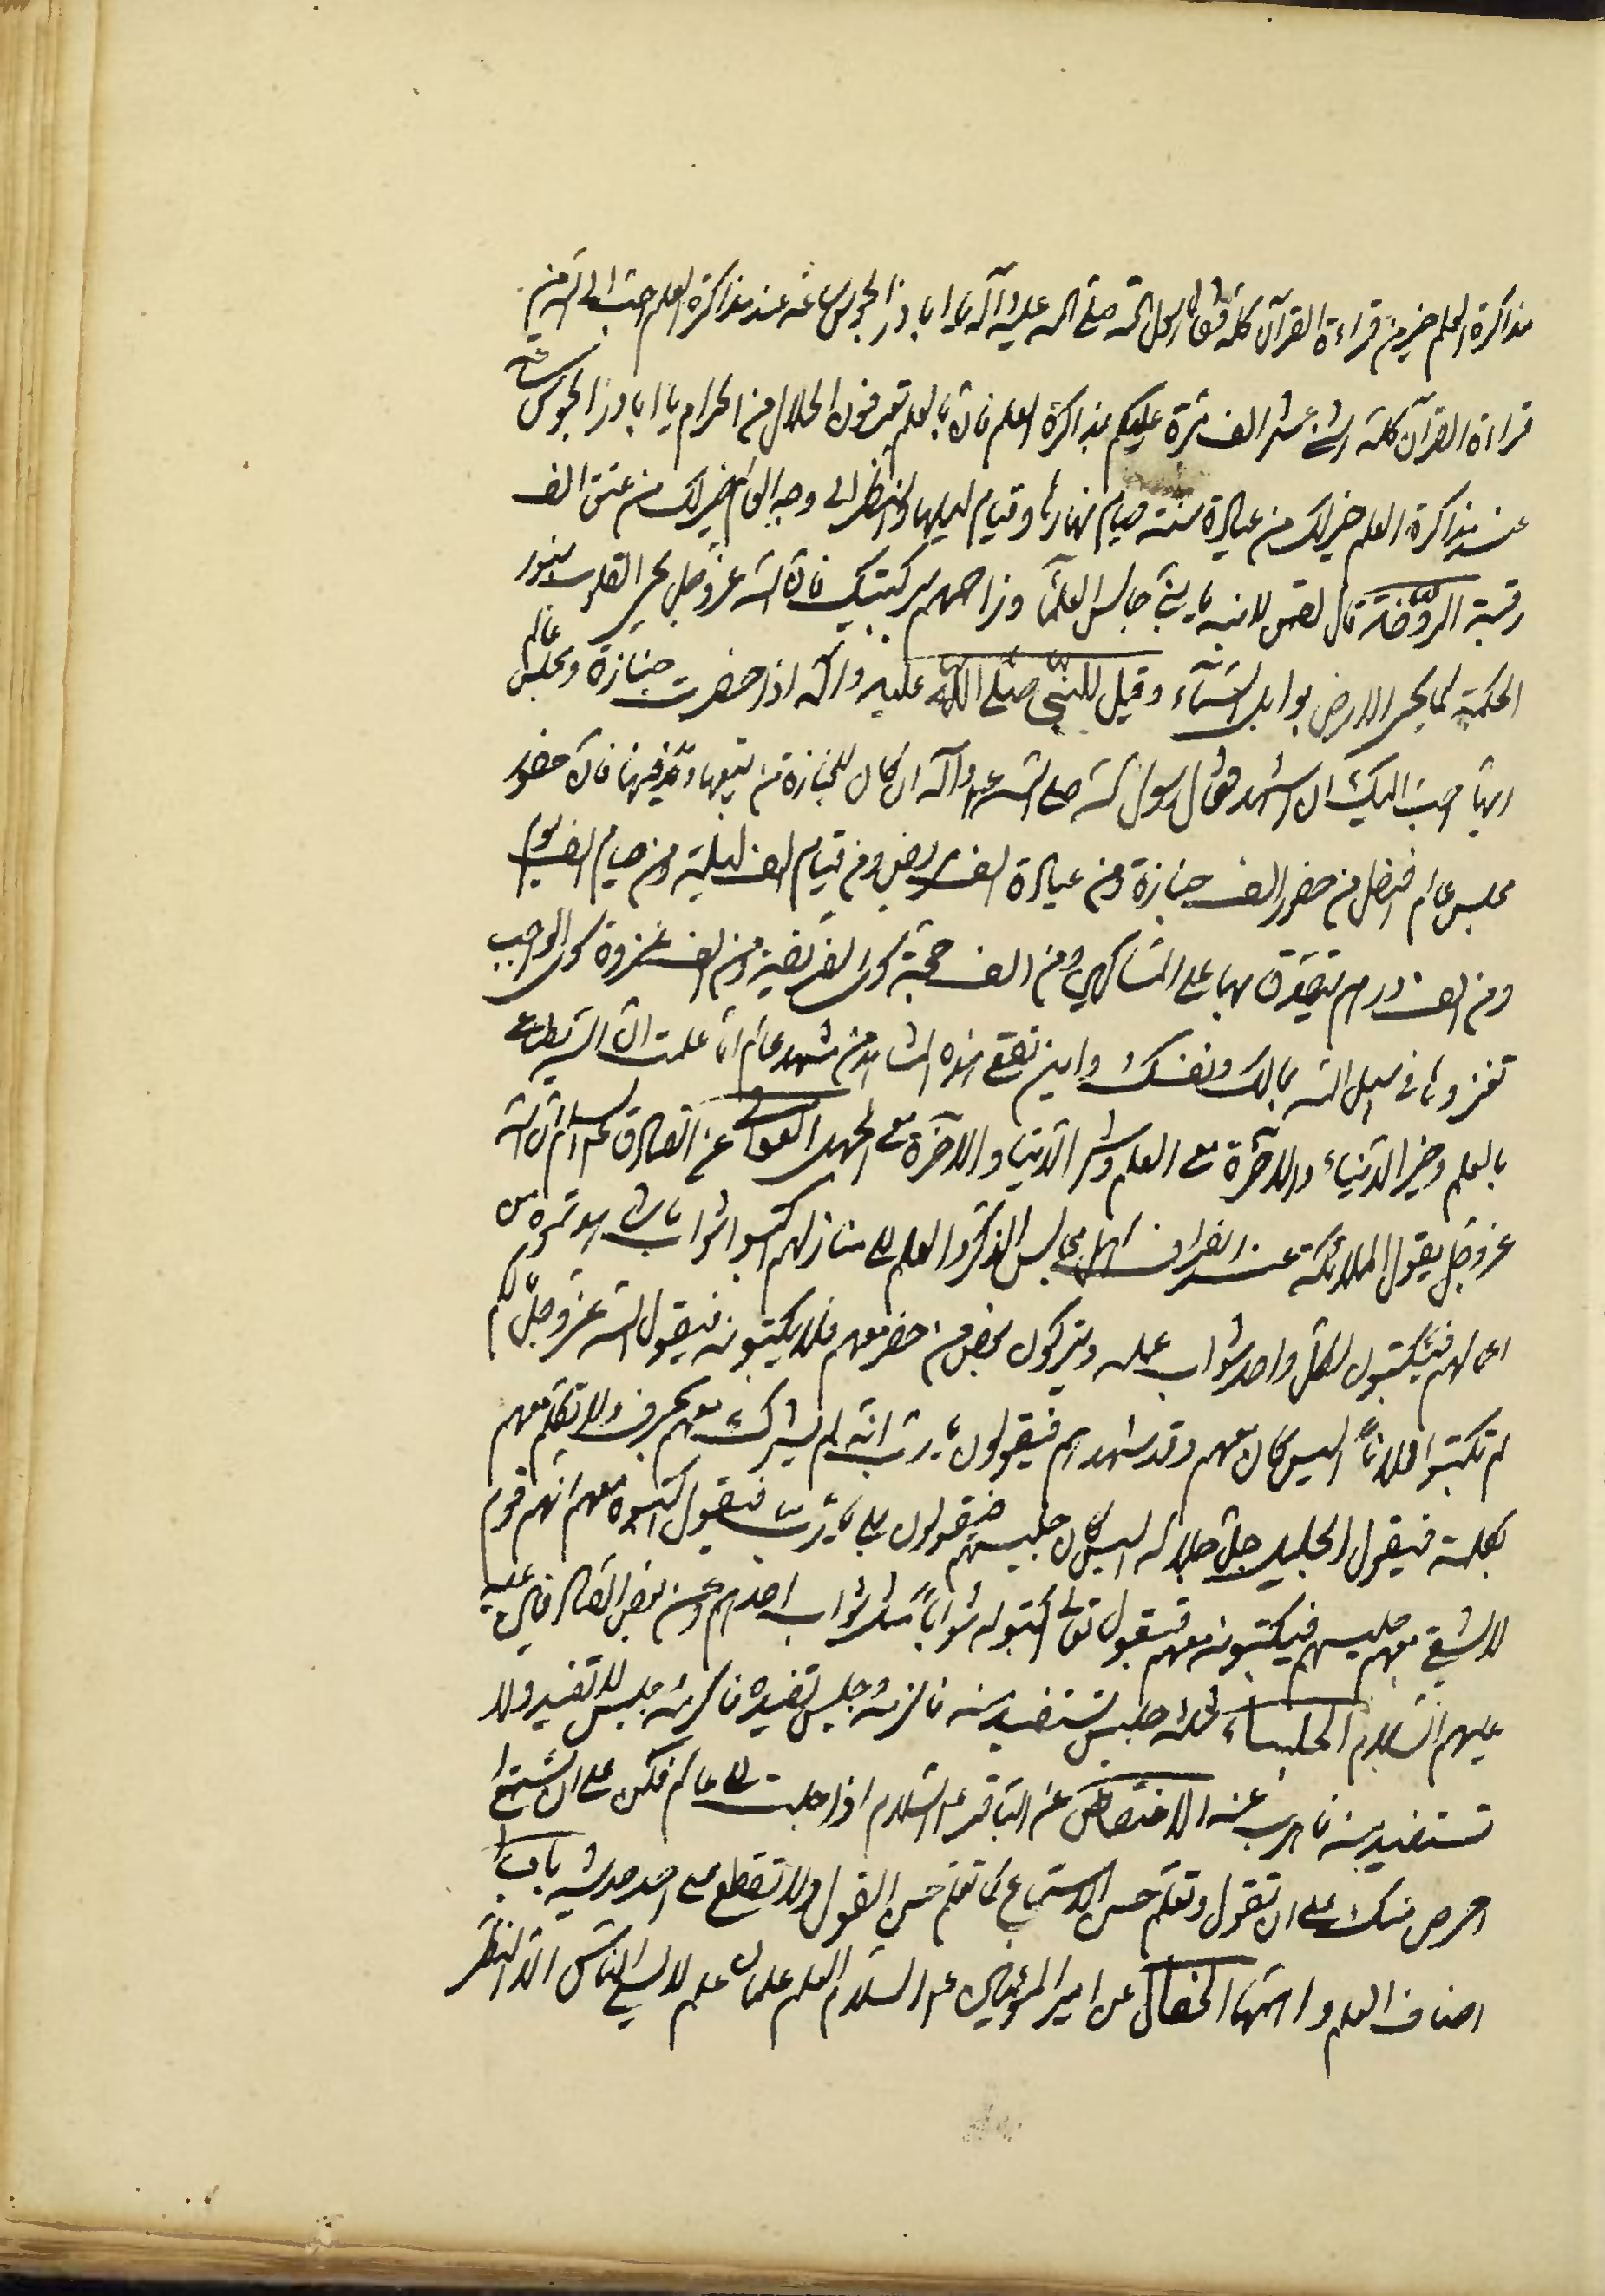 مذاكرة العلم خير من قراءة القرآن كله فقال رسول الله صلى الله عليه وآله يا ابا ذر الجلوس ساعة عند مذاكرة العلم احب الى الله من
قراءة القرآن كله اثنى عشر الف مرة عليكم بمذاكرة العلم فان بالعلم تعرفون الحلال من الحرام يا ابا ذر الجلوس ساعة
عند مذاكرة العلم خير لك من عبادة سنة صيام نهارها وقيام ليلها والنظر الى وجه العالم خير لك من عتق الف
رقبة الروضة قال لقمن لابنه يا بنى جالس العلماء وزاحمهم بركبتيك فان الله عز وجل يحيى القلوب بنور
الحكمة كما يحيى الارض بوابل السماء وقيل للنبى صلى الله عليه وآله اذا حضرت جنازة ومجلس عالم
ايهما احب اليك ان اشهد فقال رسول الله صلى الله عليه وآله ان كان للجنازة من يتبعها ويدفنها فان حضور
مجلس عالم افضل من حضور الف جنازة ومن عيادة الف مريض ومن قيام الف ليلة ومن صيام الف يوم
ومن الف درهم يتصدق بها على المساكين ومن الف حجة سوى الفريضة ومن الف غزوة سوى الواجب
تغزوها فى سبيل الله بمالك ونفسك واين تقع هذه المشاهد من مشهد عالم اما علمت ان الله يطاع
بالعلم وخير الدنيا والآخرة مع العلم وشر الدنيا والآخرة مع الجهل العوالى عن الصادق عليه السلم ان الله
عز وجل يقول لملائكته عند انصراف اهل مجالس الذكر والعلم الى منازلهم اكتبوا ثواب ما شاهدتموه من
اعمالهم فيكتبون لكل واحد ثواب عمله ويتركون بعض من حضر معهم فلا يكتبونه فيقول الله عز وجل ما لكم
لم تكتبوا فلانا اليس كان معهم وقد شهدهم فيقولون يا رب انه لم يشرك معهم بحرف ولا تكلم معهم
بكلمة فيقول الجليل جل جلاله اليس كان جليسهم فيقولون بلى يا رب فيقول اكتبوه معهم انهم قوم
لا يشقى بهم جليسهم فيكتبونه معهم فيقول تعالى اكتبوا له ثوابا مثل ثواب احدهم وعن بعض الصادقين عليه
عليهم السلام الجلساء ثلثة جليس تستفيد منه فالزمه وجليس تفيده فاكرمه وجليس لا تفيد ولا
تستفيد منه فاهرب عنه الاختصاص عن الباقر عليه السلام اذا جلست الى عالم فكن على ان تستمع
احرص منك على ان تقول وتعلم حسن الاستماع كما تعلم حسن القول ولا تقطع على احد حديثه باب
اصناف العلم و الخصال عن امير المؤمنين عليه السلام العلم علمان علم لا يسع الناس الا النظر